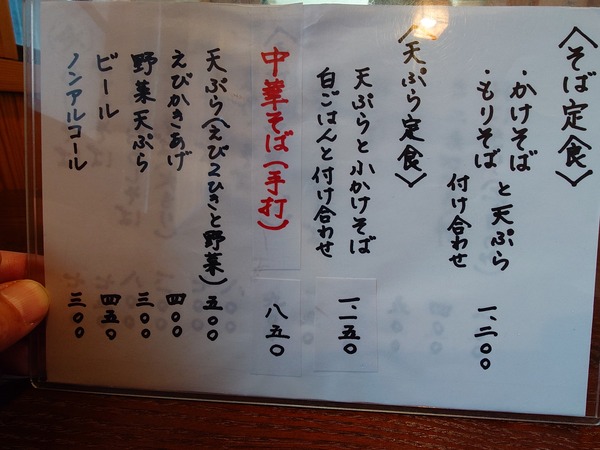 〈そば定食〉
・かけそば
・もりそば
と天ぷら
付け合わせ
一、二〇〇
〈天ぷら定食〉
天ぷらと小かけそば
白ごはんと付け合わせ
一、一五〇
中華そば(手打)
八五〇
天ぷら(えび2ひきと野菜)
五〇〇
えびかきあげ
四〇〇
野菜天ぷら
三〇〇
ビール
四五〇
ノンアルコール
三〇〇